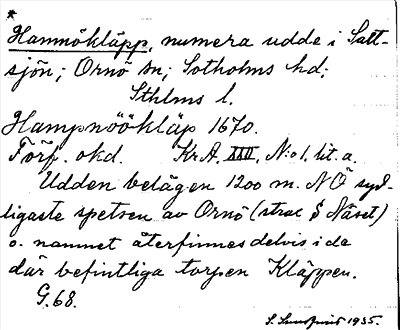 *
Hamnökläpp, numera udde i Salt-
sjön; Ornö sn; Sotholms hd;
Sthlms l.
Hampnöökläp 1670.
Förf. okd. Kr.A. XXII, N:o 1. lit. a.
Udden belägen 1200 m. NÖ syd-
ligaste spetsen av Ornö (strax S Näset)
o. namnet återfinnes delvis i de
där befintliga torpen Kläppen.
G.68.
1935.